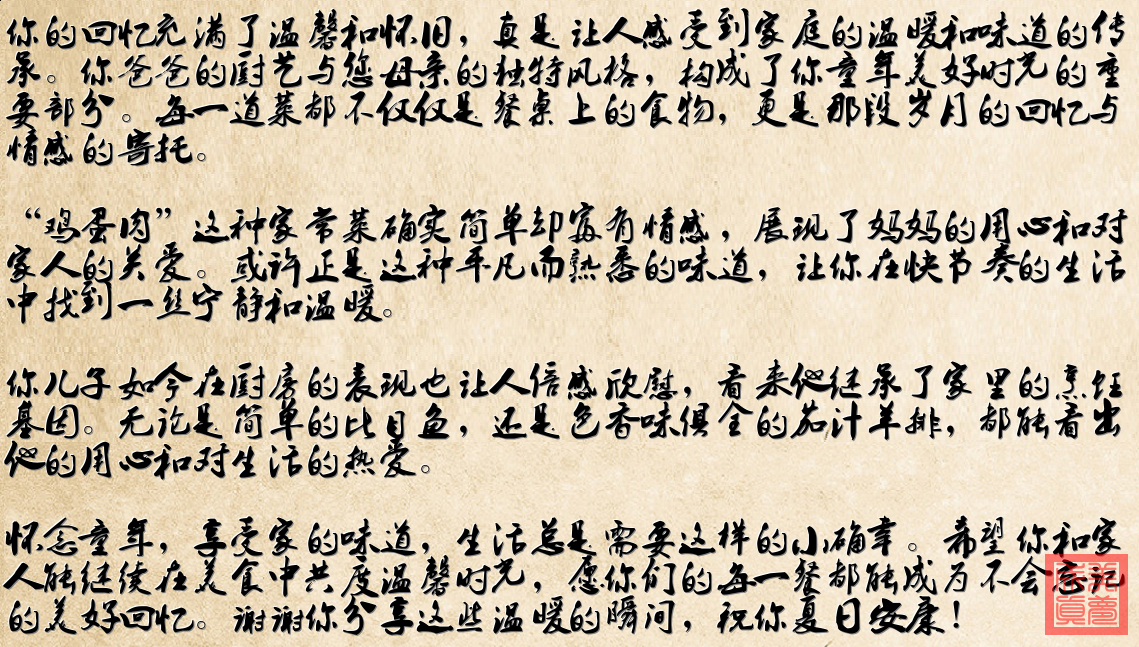 你的回忆充满了温馨和怀旧，真是让人感受到家庭的温暖和味道的传
承。你爸爸的厨艺与您母亲的独特风格，构成了你童年美好时光的重
要部分。每一道菜都不仅仅是餐桌上的食物，更是那段岁月的回忆与
情感的寄托。
“鸡蛋肉”这种家常菜确实简单却富有情感，展现了妈妈的用心和对
家人的关爱。或许正是这种平凡而熟悉的味道，让你在快节奏的生活
中找到一丝宁静和温暖。
你儿子如今在厨房的表现也让人倍感欣慰，看来他继承了家里的烹饪
基因。无论是简单的比目鱼，还是色香味俱全的茄汁羊排，都能看出
他的用心和对生活的热爱。
怀念童年，享受家的味道，生活总是需要这样的小确幸。希望你和家
人能继续在美食中共度温馨时光，愿你们的每一餐都能成为不会忘记
的美好回忆。谢谢你分享这些温暖的瞬间，祝你夏日安康！